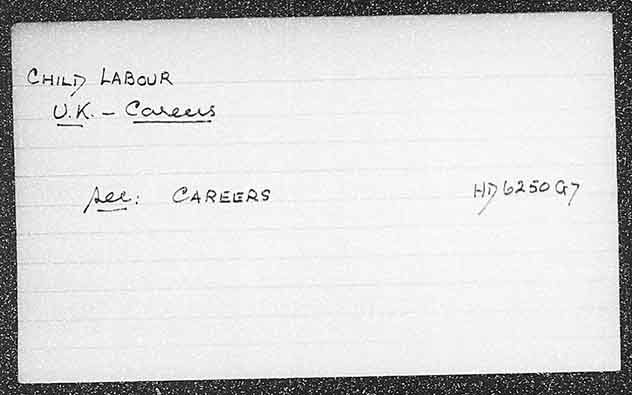 CHILD LABOUR
U.K. - Careers
See: CAREERS HD6250G7